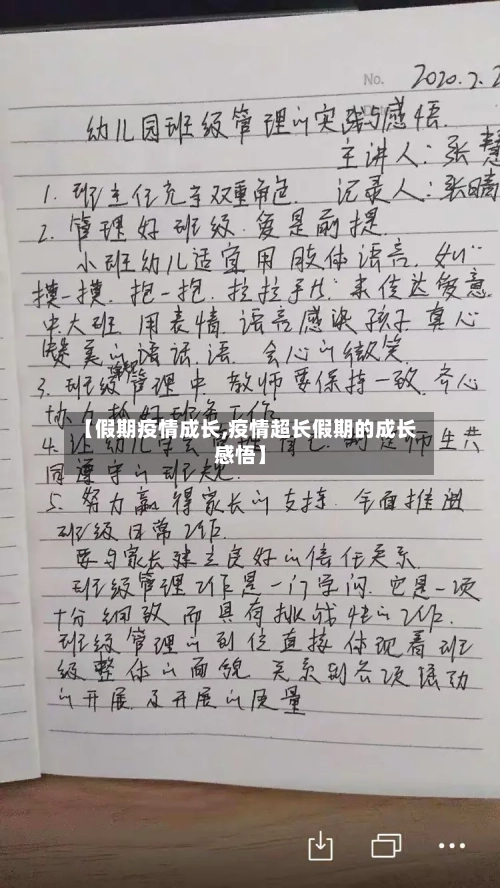 No. 2020.2.2
幼儿园班级管理的实践与感悟
主讲人:张慧
1. 班主任充当双重角色. 记录人:张晴
2. 管理好班级.爱是前提.
小班幼儿适宜用肢体语言.如:"
摸一摸.抱一抱.拉拉手".来传达爱意.
中大班用表情.语言感染孩子.真心
赞美的话语.会心的微笑.
3. 班级管理中.教师要保持一致.齐心
协力
【假期疫情成长,疫情超长假期的成长
感悟】
4. 让幼儿学会 师生共
同遵守的班规.
5. 努力赢得家长的支持.全面推进
班级日常工作.
要与家长建立良好的信任关系.
班级管理工作是一门学问.它是一项
十分细致而具有挑战性的工作.
班级管理的到位直接体现着班
级整体的面貌.关系到各项活动
的开展及开展的质量